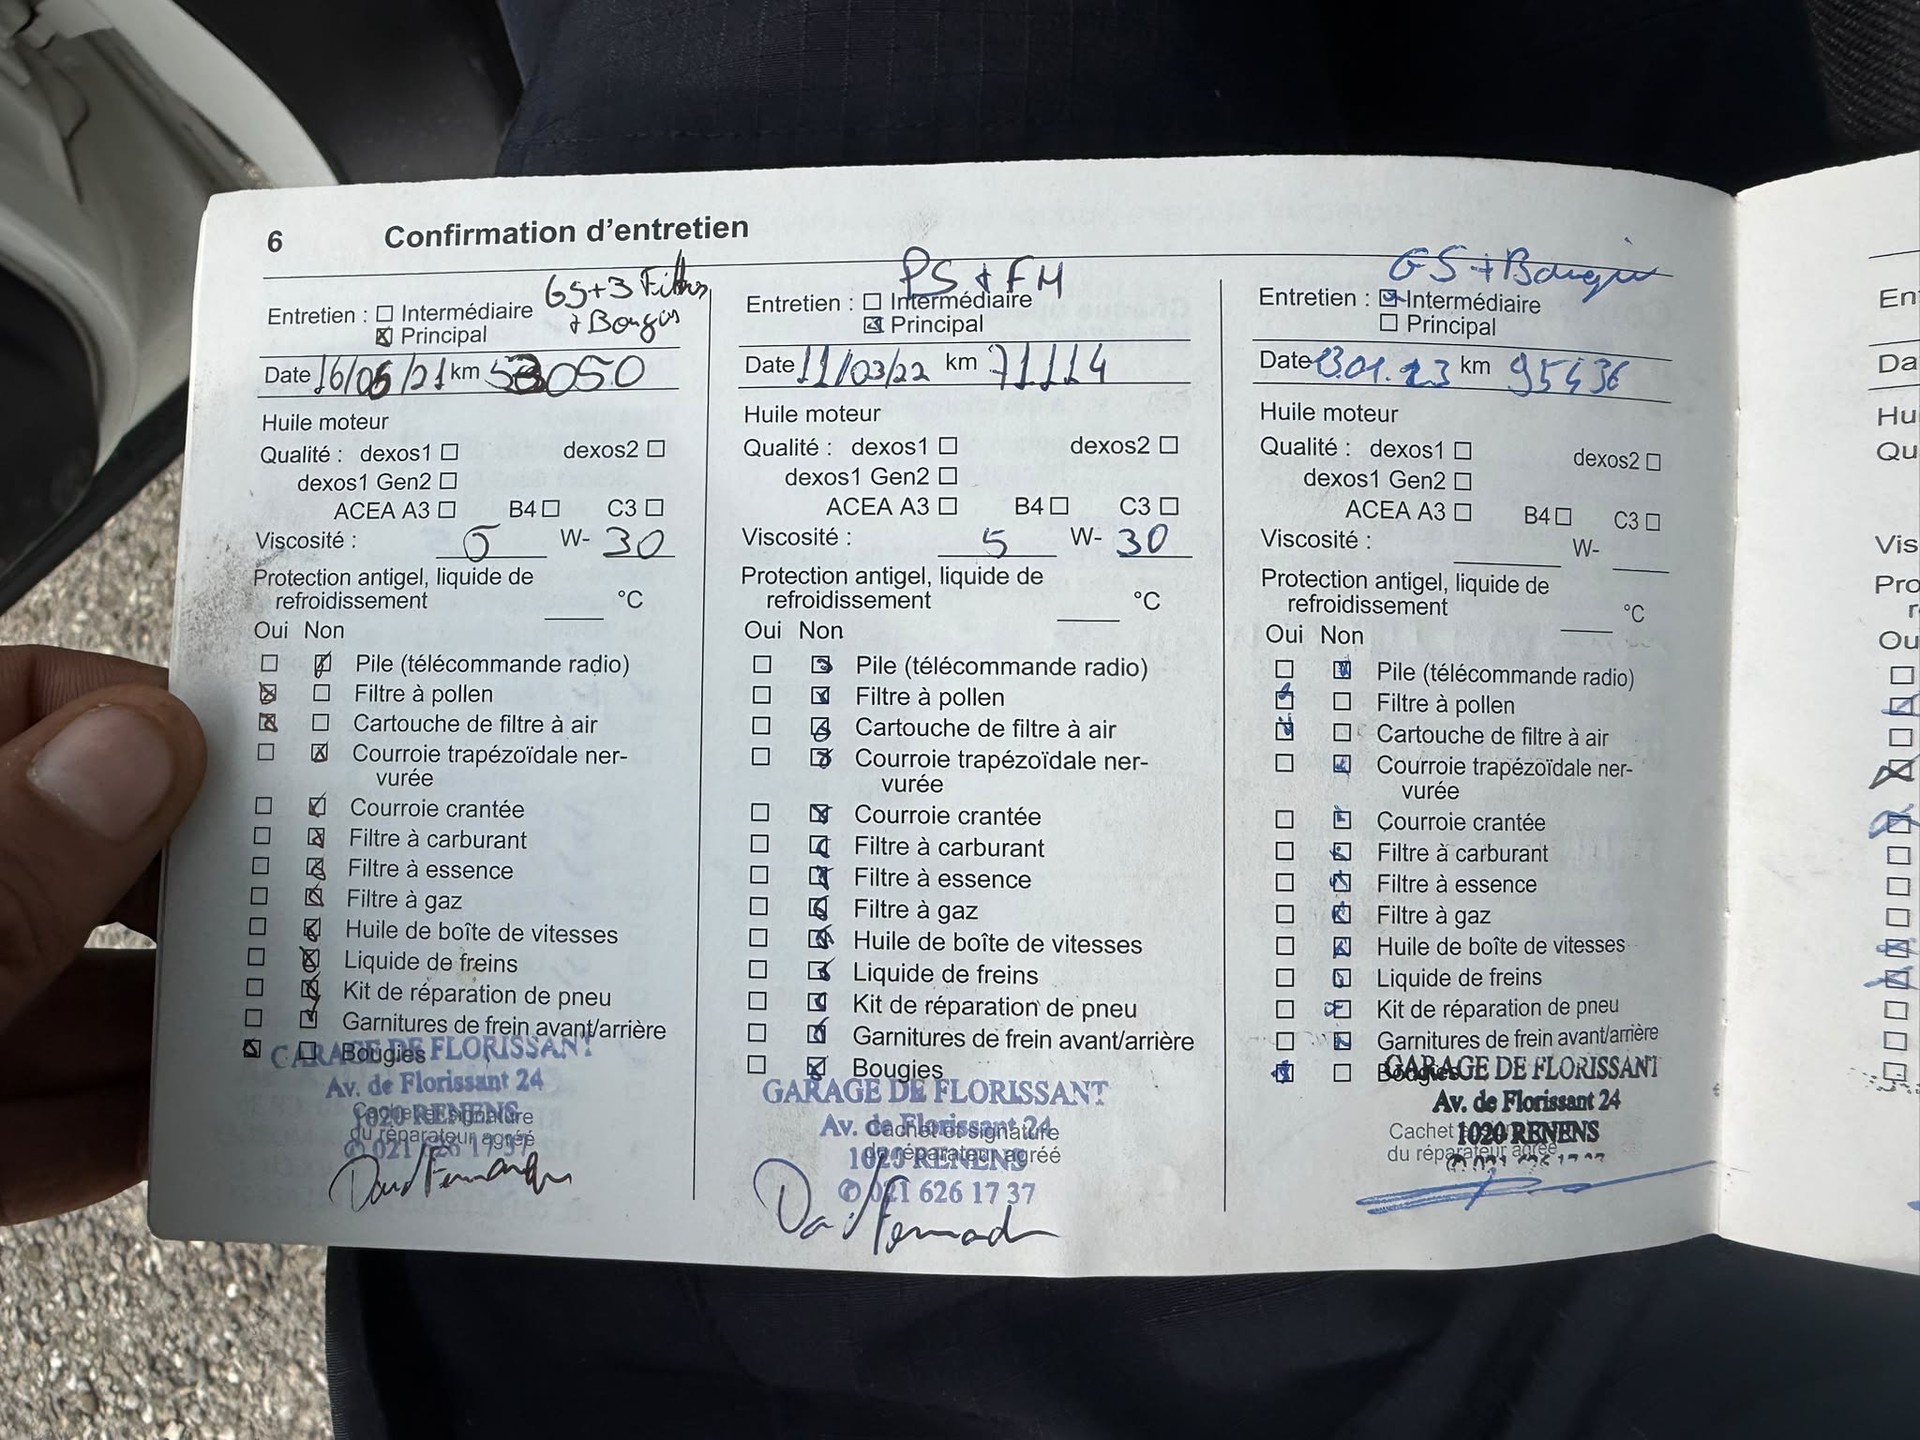 6 Confirmation d'entretien
GS+3 Filtres
+ Bougies
Entretien : Intermédiaire
Principal
Date 16/06/21 km 53050
Huile moteur
Qualité : dexos1 dexos2
dexos1 Gen2
ACEA A3 B4 C3
Viscosité : 5 W- 30
Protection antigel, liquide de
refroidissement °C
Oui Non
Pile (télécommande radio)
Filtre à pollen
Cartouche de filtre à air
Courroie trapézoïdale ner-
vurée
Courroie crantée
Filtre à carburant
Filtre à essence
Filtre à gaz
Huile de boîte de vitesses
Liquide de freins
Kit de réparation de pneu
Garnitures de frein avant/arrière
Bougies
GARAGE DE FLORISSANT
Av. de Florissant 24
1020 RENENS
Cachet et signature
du réparateur agréé
021 626 17 37
PS + FH
Entretien : Intermédiaire
Principal
Date 11/03/22 km 71114
Huile moteur
Qualité : dexos1 dexos2
dexos1 Gen2
ACEA A3 B4 C3
Viscosité : 5 W- 30
Protection antigel, liquide de
refroidissement °C
Oui Non
Pile (télécommande radio)
Filtre à pollen
Cartouche de filtre à air
Courroie trapézoïdale ner-
vurée
Courroie crantée
Filtre à carburant
Filtre à essence
Filtre à gaz
Huile de boîte de vitesses
Liquide de freins
Kit de réparation de pneu
Garnitures de frein avant/arrière
Bougies
GARAGE DE FLORISSANT
Av. de Florissant 24
Cachet et signature
1020 RENENS
du réparateur agréé
021 626 17 37
GS + Bougies
Entretien : Intermédiaire
Principal
Date 13.01.23 km 95436
Huile moteur
Qualité : dexos1 dexos2
dexos1 Gen2
ACEA A3 B4 C3
Viscosité : W-
Protection antigel, liquide de
refroidissement °C
Oui Non
Pile (télécommande radio)
Filtre à pollen
Cartouche de filtre à air
Courroie trapézoïdale ner-
vurée
Courroie crantée
Filtre à carburant
Filtre à essence
Filtre à gaz
Huile de boîte de vitesses
Liquide de freins
Kit de réparation de pneu
Garnitures de frein avant/arrière
Bougies
GARAGE DE FLORISSANT
Av. de Florissant 24
Cachet
1020 RENENS
du réparateur agréé
En
Da
Hu
Qu
Vis
Pro
r
Ou